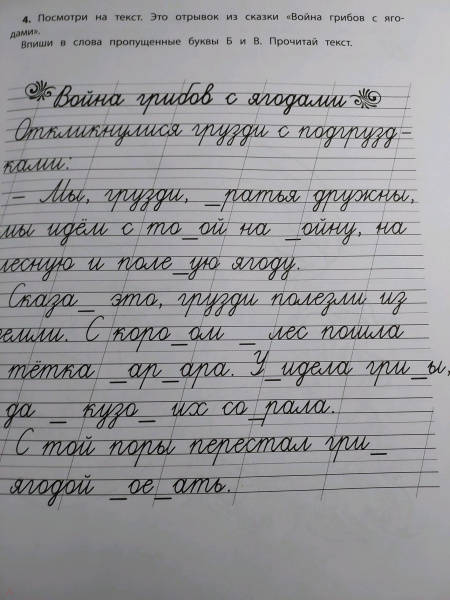 4. Посмотри на текст. Это отрывок из сказки «Война грибов с яго-
дами».
Впиши в слова пропущенные буквы Б и В. Прочитай текст.
Война грибов с ягодами
Откликнулися грузди с подгрузд-
ками:
– Мы, грузди, _ратья дружны,
мы идём с то_ой на _ойну, на
лесную и поле_ую ягоду.
Сказа_ это, грузди полезли из
земли. С коро_ом _ лес пошла
тётка _ар_ара. У_идела гри_ы,
да _ кузо_ их со_рала.
С той поры перестал гри_
ягодой _ое_ать.